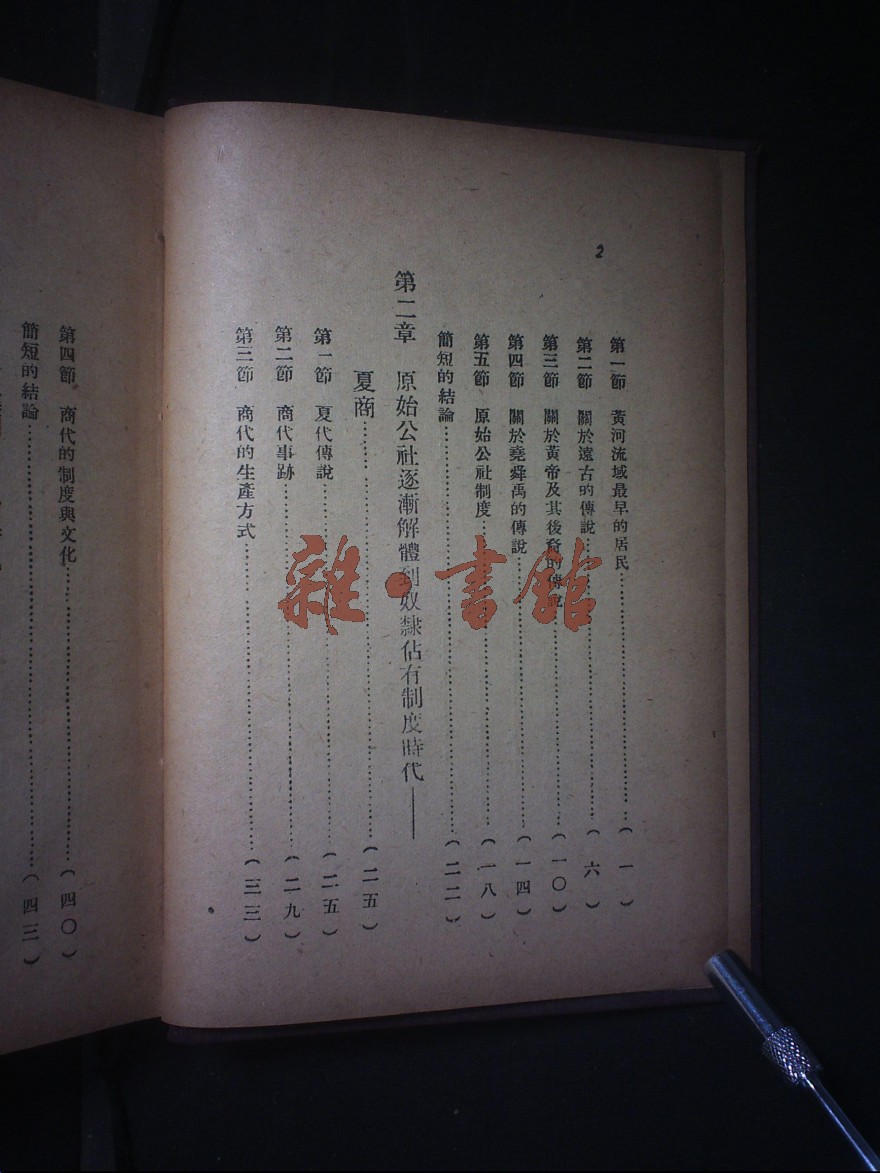 2
第一節 黃河流域最早的居民……………(一)
第二節 關於遠古的傳說……………(六)
第三節 關於黃帝及其後裔的傳說……………(一〇)
第四節 關於堯舜禹的傳說……………(一四)
第五節 原始公社制度……………(一八)
簡短的結論……………(二二)
第二章 原始公社逐漸解體到奴隸佔有制度時代——
夏商……………(二五)
第一節 夏代傳說……………(二五)
第二節 商代事跡……………(二九)
第三節 商代的生產方式……………(三三)
第四節 商代的制度與文化……………(四〇)
簡短的結論……………(四三)
雜·書館